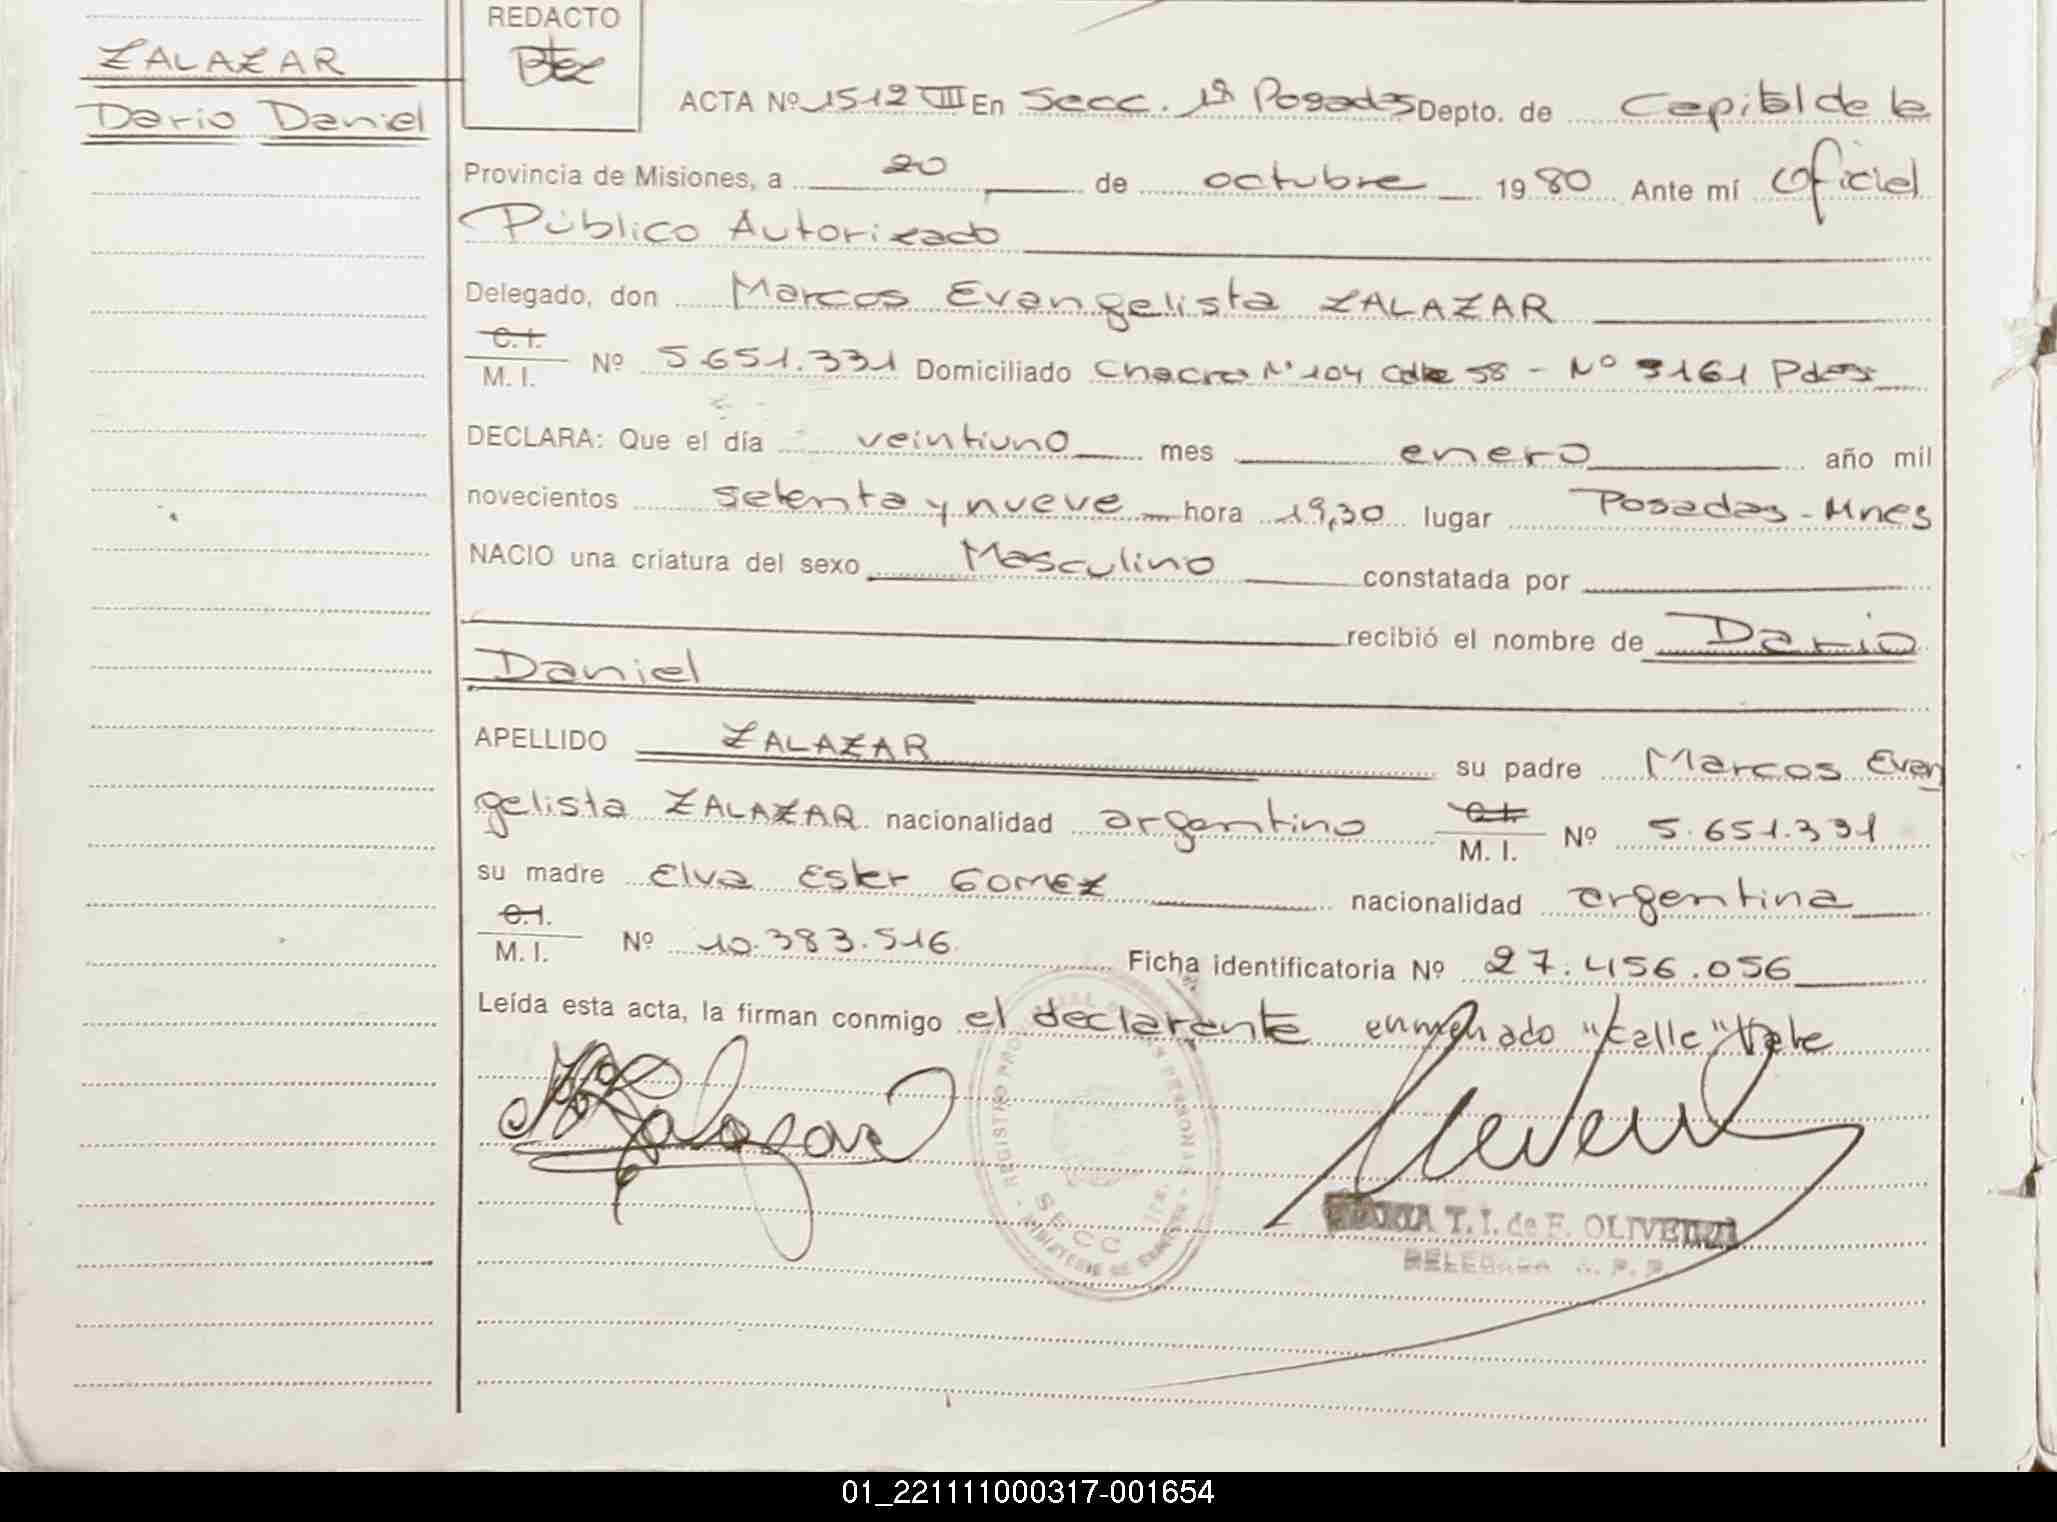 ZALAZAR
Dario Daniel
REDACTO
ACTA Nº 1512 VIII En Secc. 1ª Posadas Depto. de Capital de la
Provincia de Misiones, a 20 de octubre 1980 Ante mí Oficial
Público Autorizado
Delegado, don Marcos Evangelista ZALAZAR
C.I.
M. I. Nº 5.651.331 Domiciliado Chacra Nº 104 Calle 58 - Nº 3161 Pdas
DECLARA: Que el día veintiuno mes enero año mil
novecientos setenta y nueve hora 19,30 lugar Posadas - Mnes
NACIO una criatura del sexo Masculino constatada por
recibió el nombre de Dario
Daniel
APELLIDO ZALAZAR su padre Marcos Evan
gelista ZALAZAR nacionalidad argentino C.I. M. I. Nº 5.651.331
su madre Elva Ester GOMEZ nacionalidad argentina
C.I.
M. I. Nº 10.383.516 Ficha identificatoria Nº 27.456.056
Leída esta acta, la firman conmigo el declarante enmendado "calle" Vale
Zalazar
REGISTRO PROVINCIAL DE LAS PERSONAS
SECC
MARIA T. I. de F. OLIVEIRA
DELEGADA
01_221111000317-001654